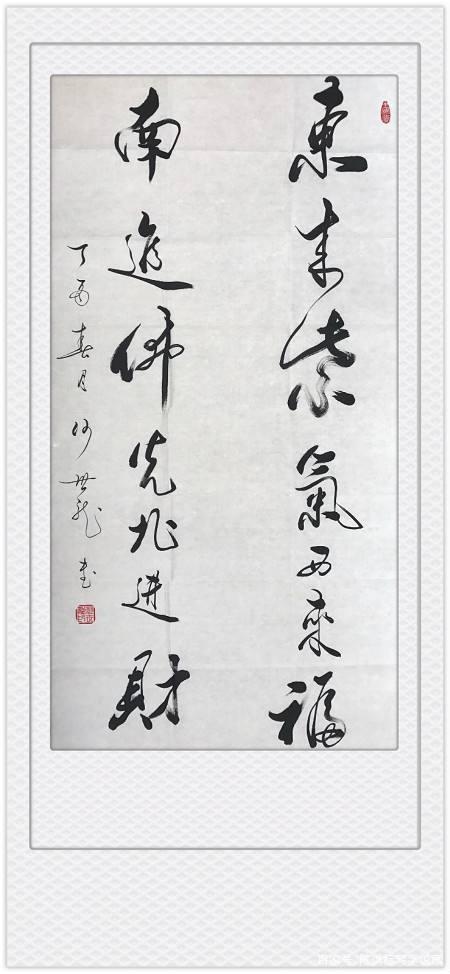 東来紫氣西來福
南進佛光北進財
丁酉春月何世龍書